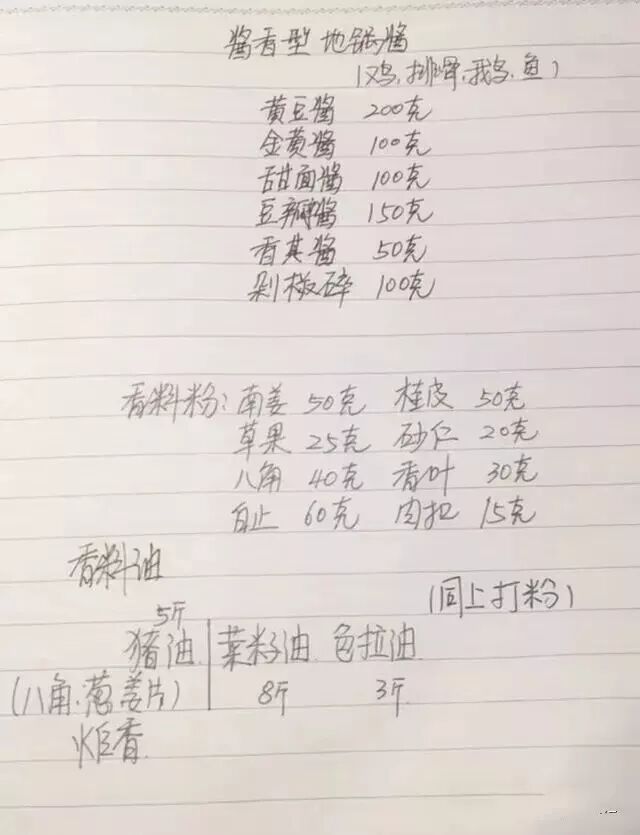 酱香型 地锅酱
(鸡,排骨,鹅,鱼)
黄豆酱 200克
金黄酱 100克
甜面酱 100克
豆瓣酱 150克
香其酱 50克
剁椒碎 100克
香料粉: 南姜 50克 桂皮 50克
草果 25克 砂仁 20克
八角 40克 香叶 30克
白止 60克 肉扣 15克
香料油
(同上打粉)
5斤
猪油 菜籽油 色拉油
(八角.葱姜片) 8斤 3斤
炬香